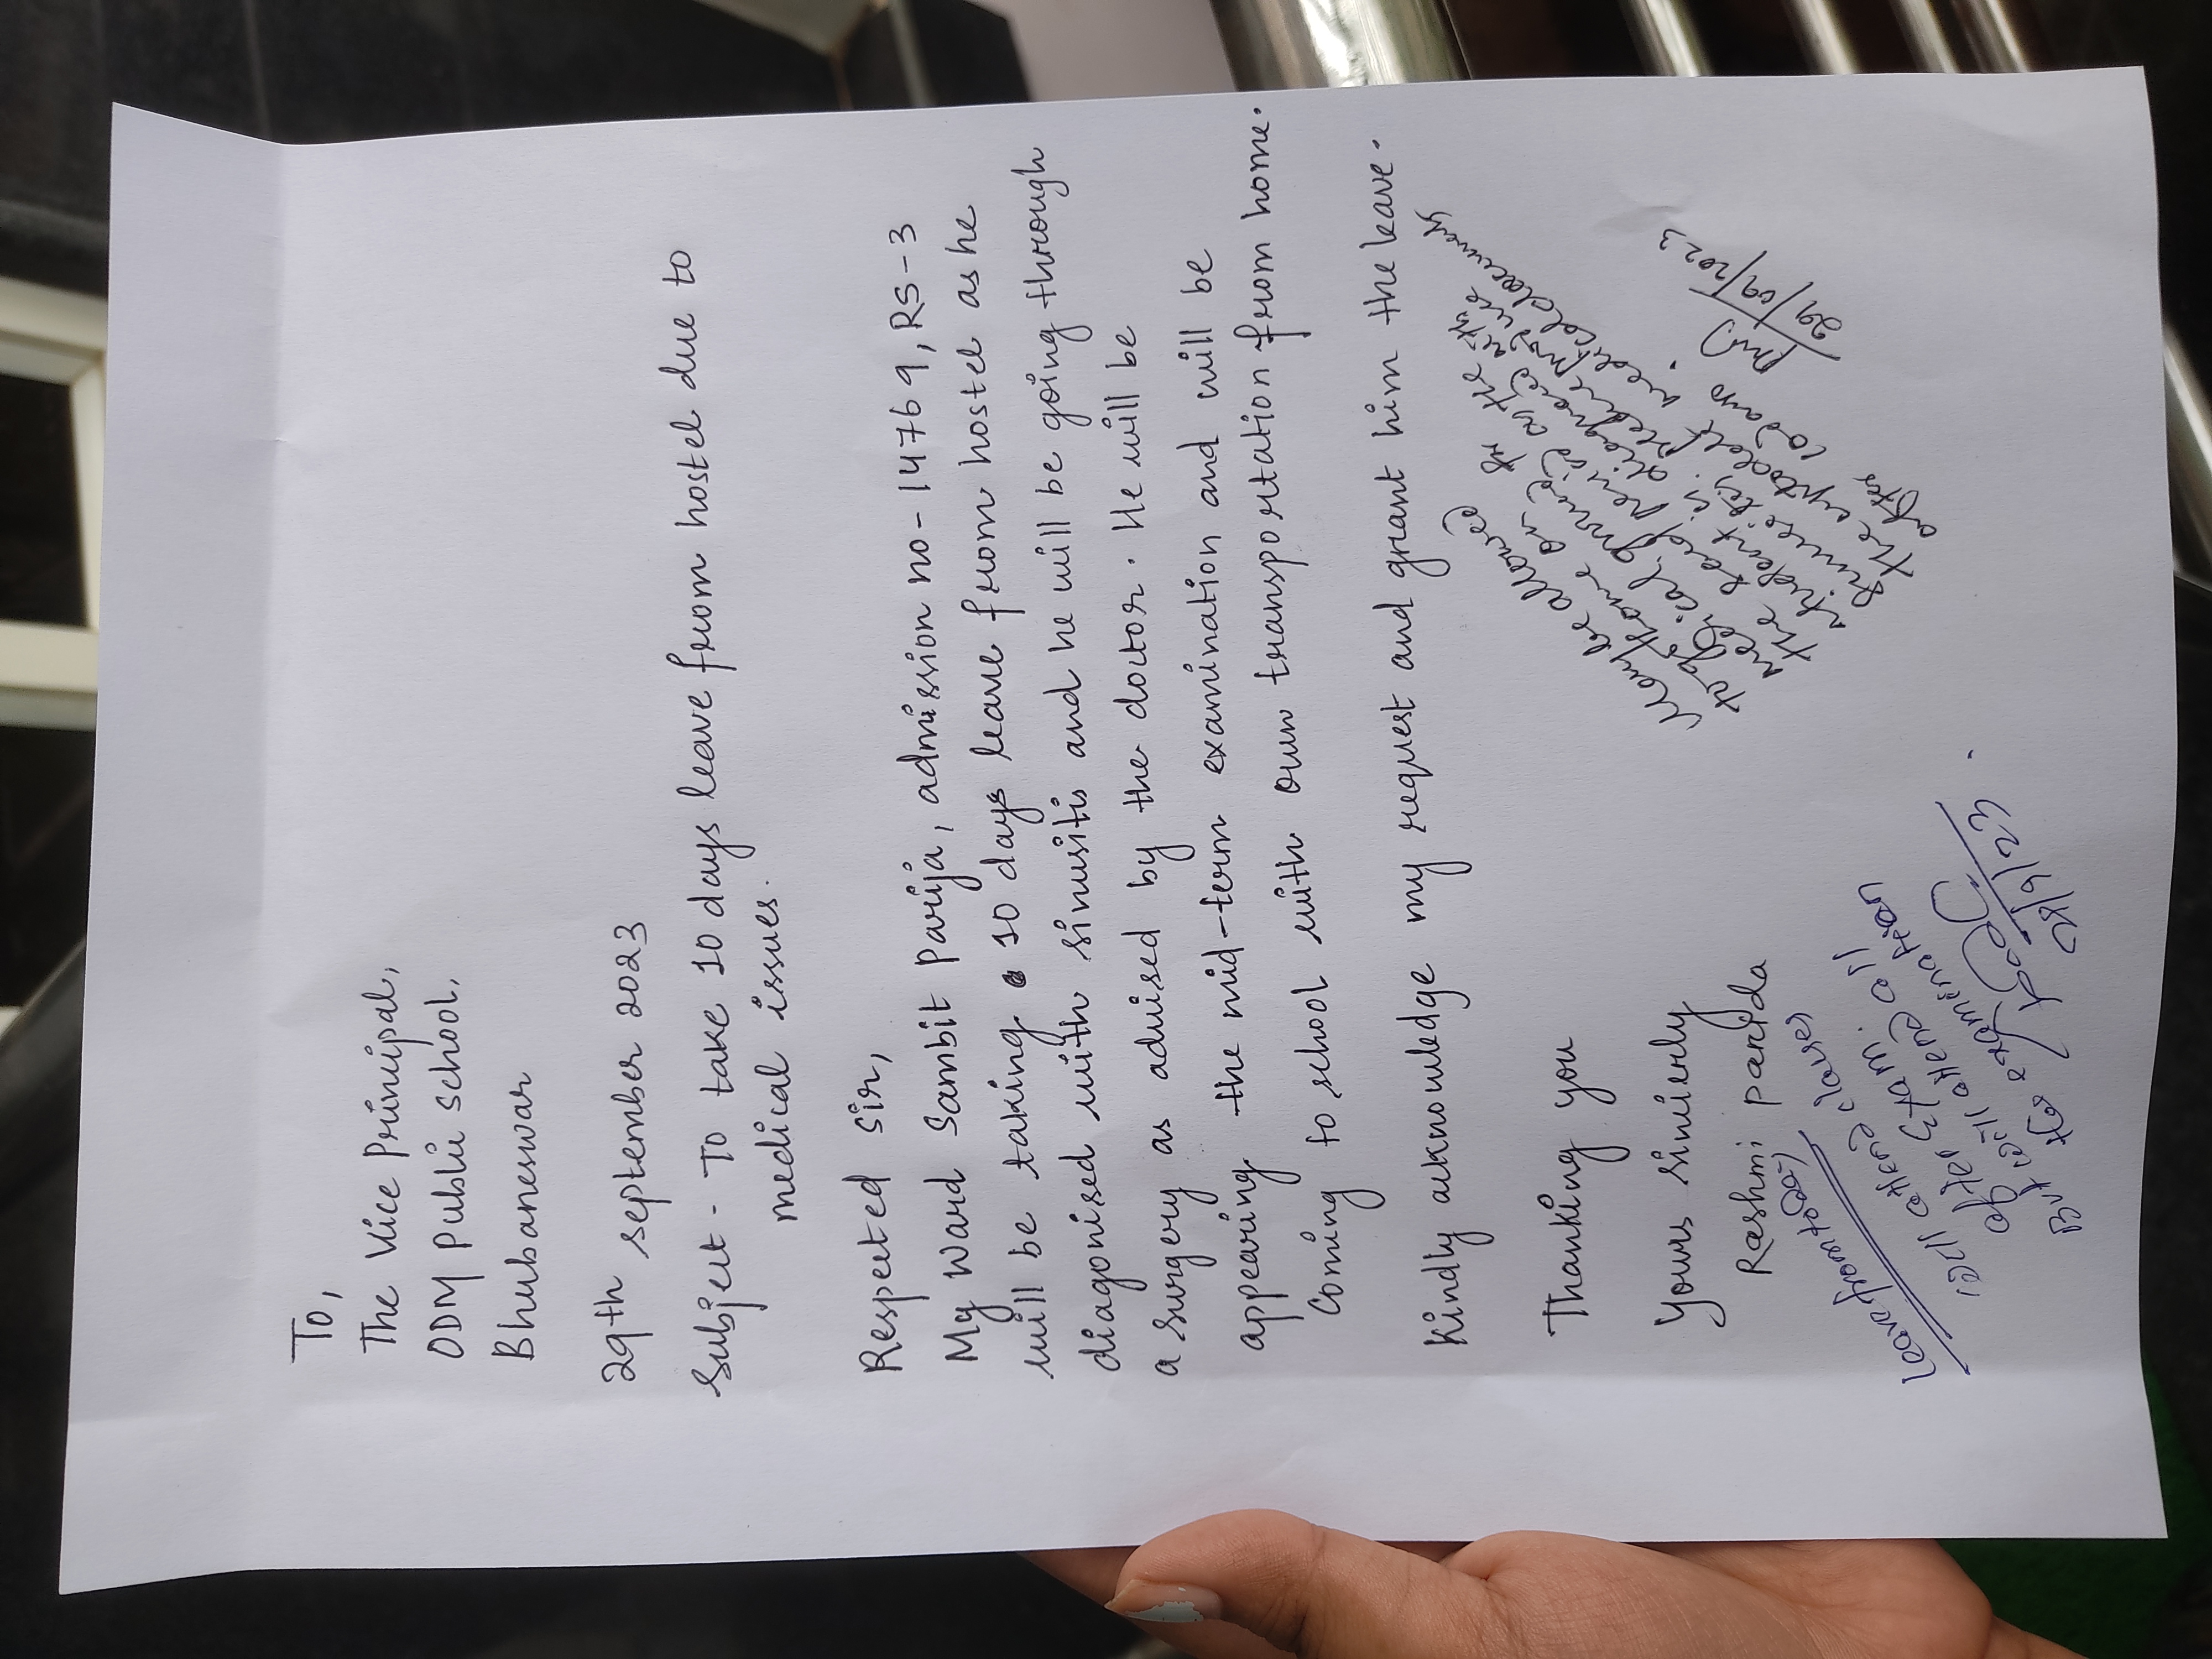 To,
The Vice Principal,
ODM Public school,
Bhubaneswar
29th september 2023
Subject - To take 10 days leave from hostel due to
medical issues.
Respected Sir,
My ward Sambit Parija, admission no - 14769, RS-3
will be taking 10 days leave from hostel as he
diagonised with sinusitis and he will be going through
a surgery as advised by the doctor. He will be
appearing the mid-term examination and will be
Coming to school with own transportation from home.
Kindly acknowledge my request and grant him the leave.
Thanking you
Yours sincierly
Rashmi parida
May be allowed
to go home on
medical ground for
the said period as the
student is diagnosed with
Sinusitis. produce
the medical documents
after 10 days.
29/09/2023
leave from today
will attend classes
after Exam. all
But will attend all
the examination
29/9/23